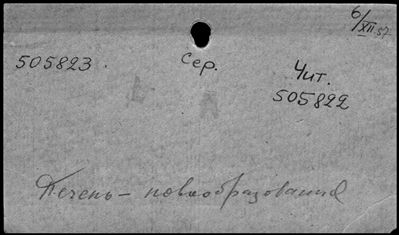 6/XII 57
505823. Сер. Чит.
505822
Печень – новообразования